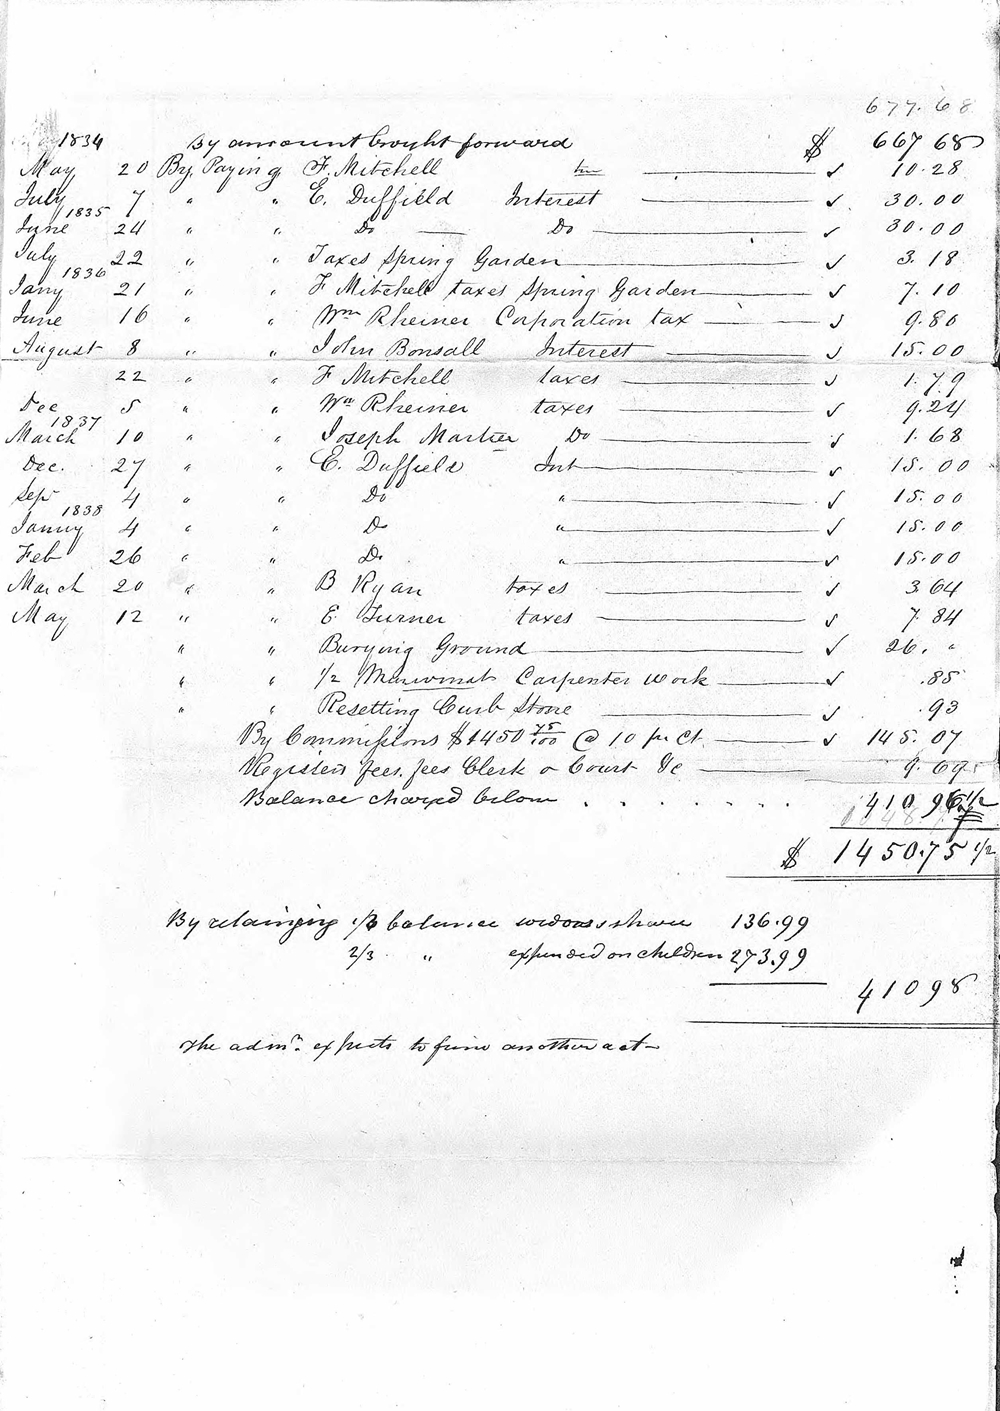 677.68
1834 By amount brought forward $ 667 68
May 20 By Paying F. Mitchell ✓ 10.28
July 7 " " E. Duffield Interest ✓ 30.00
1835
June 24 " " Do — Do ✓ 30.00
July 22 " " Taxes Spring Garden ✓ 3.18
1836
Jany 21 " " F Mitchell taxes Spring Garden ✓ 7.10
June 16 " " Wm Rheiner Corporation tax ✓ 9.80
August 8 " " John Bonsall Interest ✓ 15.00
22 " " F Mitchell taxes ✓ 1.79
Dec 5 " " Wm Rheiner taxes ✓ 9.24
1837
March 10 " " Joseph Do ✓ 1.68
Dec. 27 " " E. Duffield Int ✓ 15.00
Sep 4 " " Do " ✓ 15.00
1838
Januy 4 " " Do " ✓ 15.00
Feb 26 " " Do " ✓ 15.00
March 20 " " B Ryan taxes ✓ 3.64
May 12 " " E Turner taxes ✓ 7.84
" " Burying Ground ✓ 26. "
" " 1/2 Carpenter work ✓ .85
" " Resetting Curb Stone ✓ .93
By Commissions $1450 75/100 @ 10 pr Ct. ✓ 145.07
Registers fees. fees Clerk o Court &c 9.69
Balance charged below . . . . . . . 410 96 1/2
$ 1450.75 1/2
By retaining 1/3 balance widows share 136.99
2/3 " expended on children 273.99
410 98
The admr. expects to another act